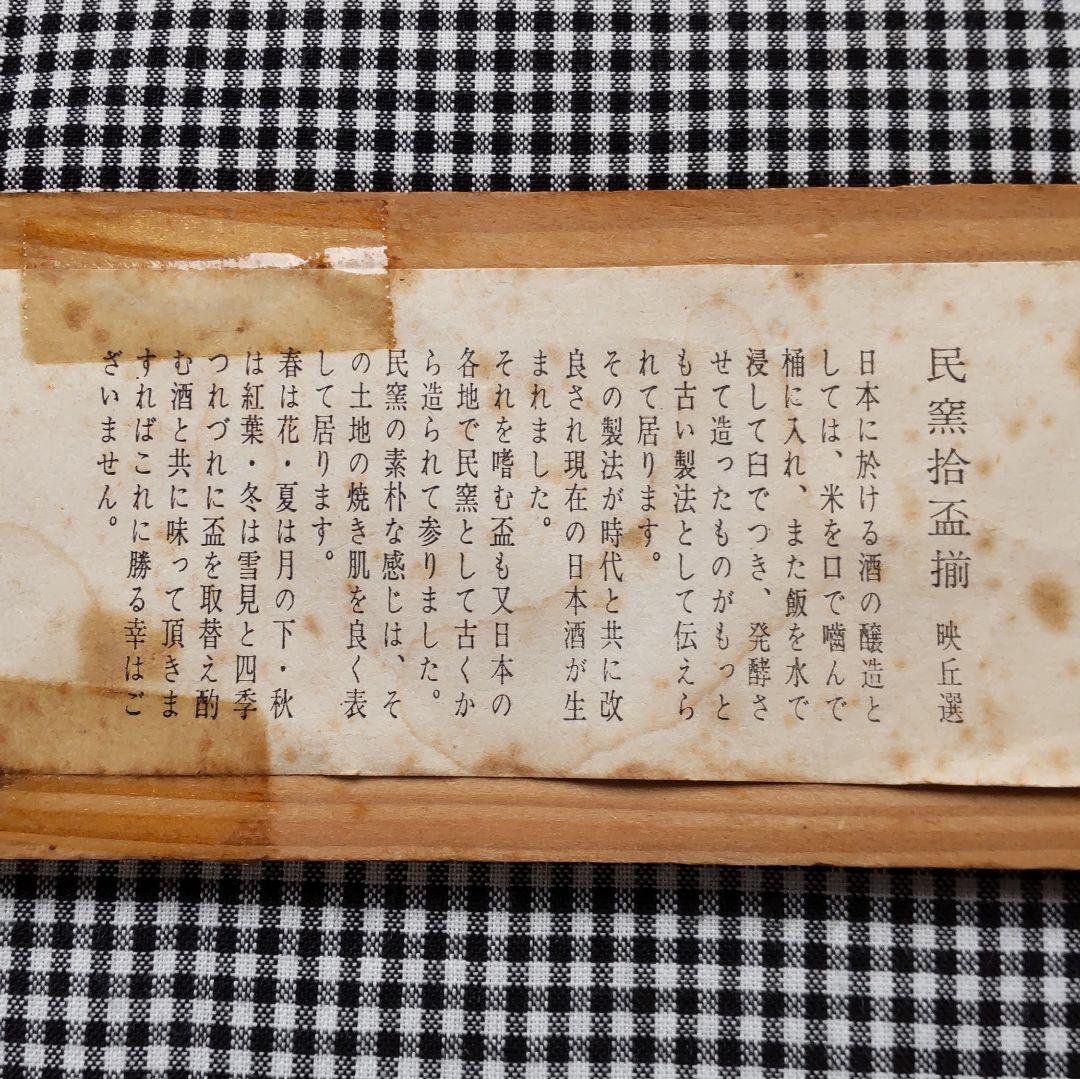 民窯拾盃揃　映丘選
日本に於ける酒の醸造と
しては、米を口で噛んで
桶に入れ、また飯を水で
浸して臼でつき、発酵さ
せて造ったものがもっと
も古い製法として伝えら
れて居ります。
その製法が時代と共に改
良され現在の日本酒が生
まれました。
それを嗜む盃も又日本の
各地で民窯として古くか
ら造られて参りました。
民窯の素朴な感じは、そ
の土地の焼き肌を良く表
して居ります。
春は花・夏は月の下・秋
は紅葉・冬は雪見と四季
つれづれに盃を取替え酌
む酒と共に味って頂きま
すればこれに勝る幸はご
ざいません。